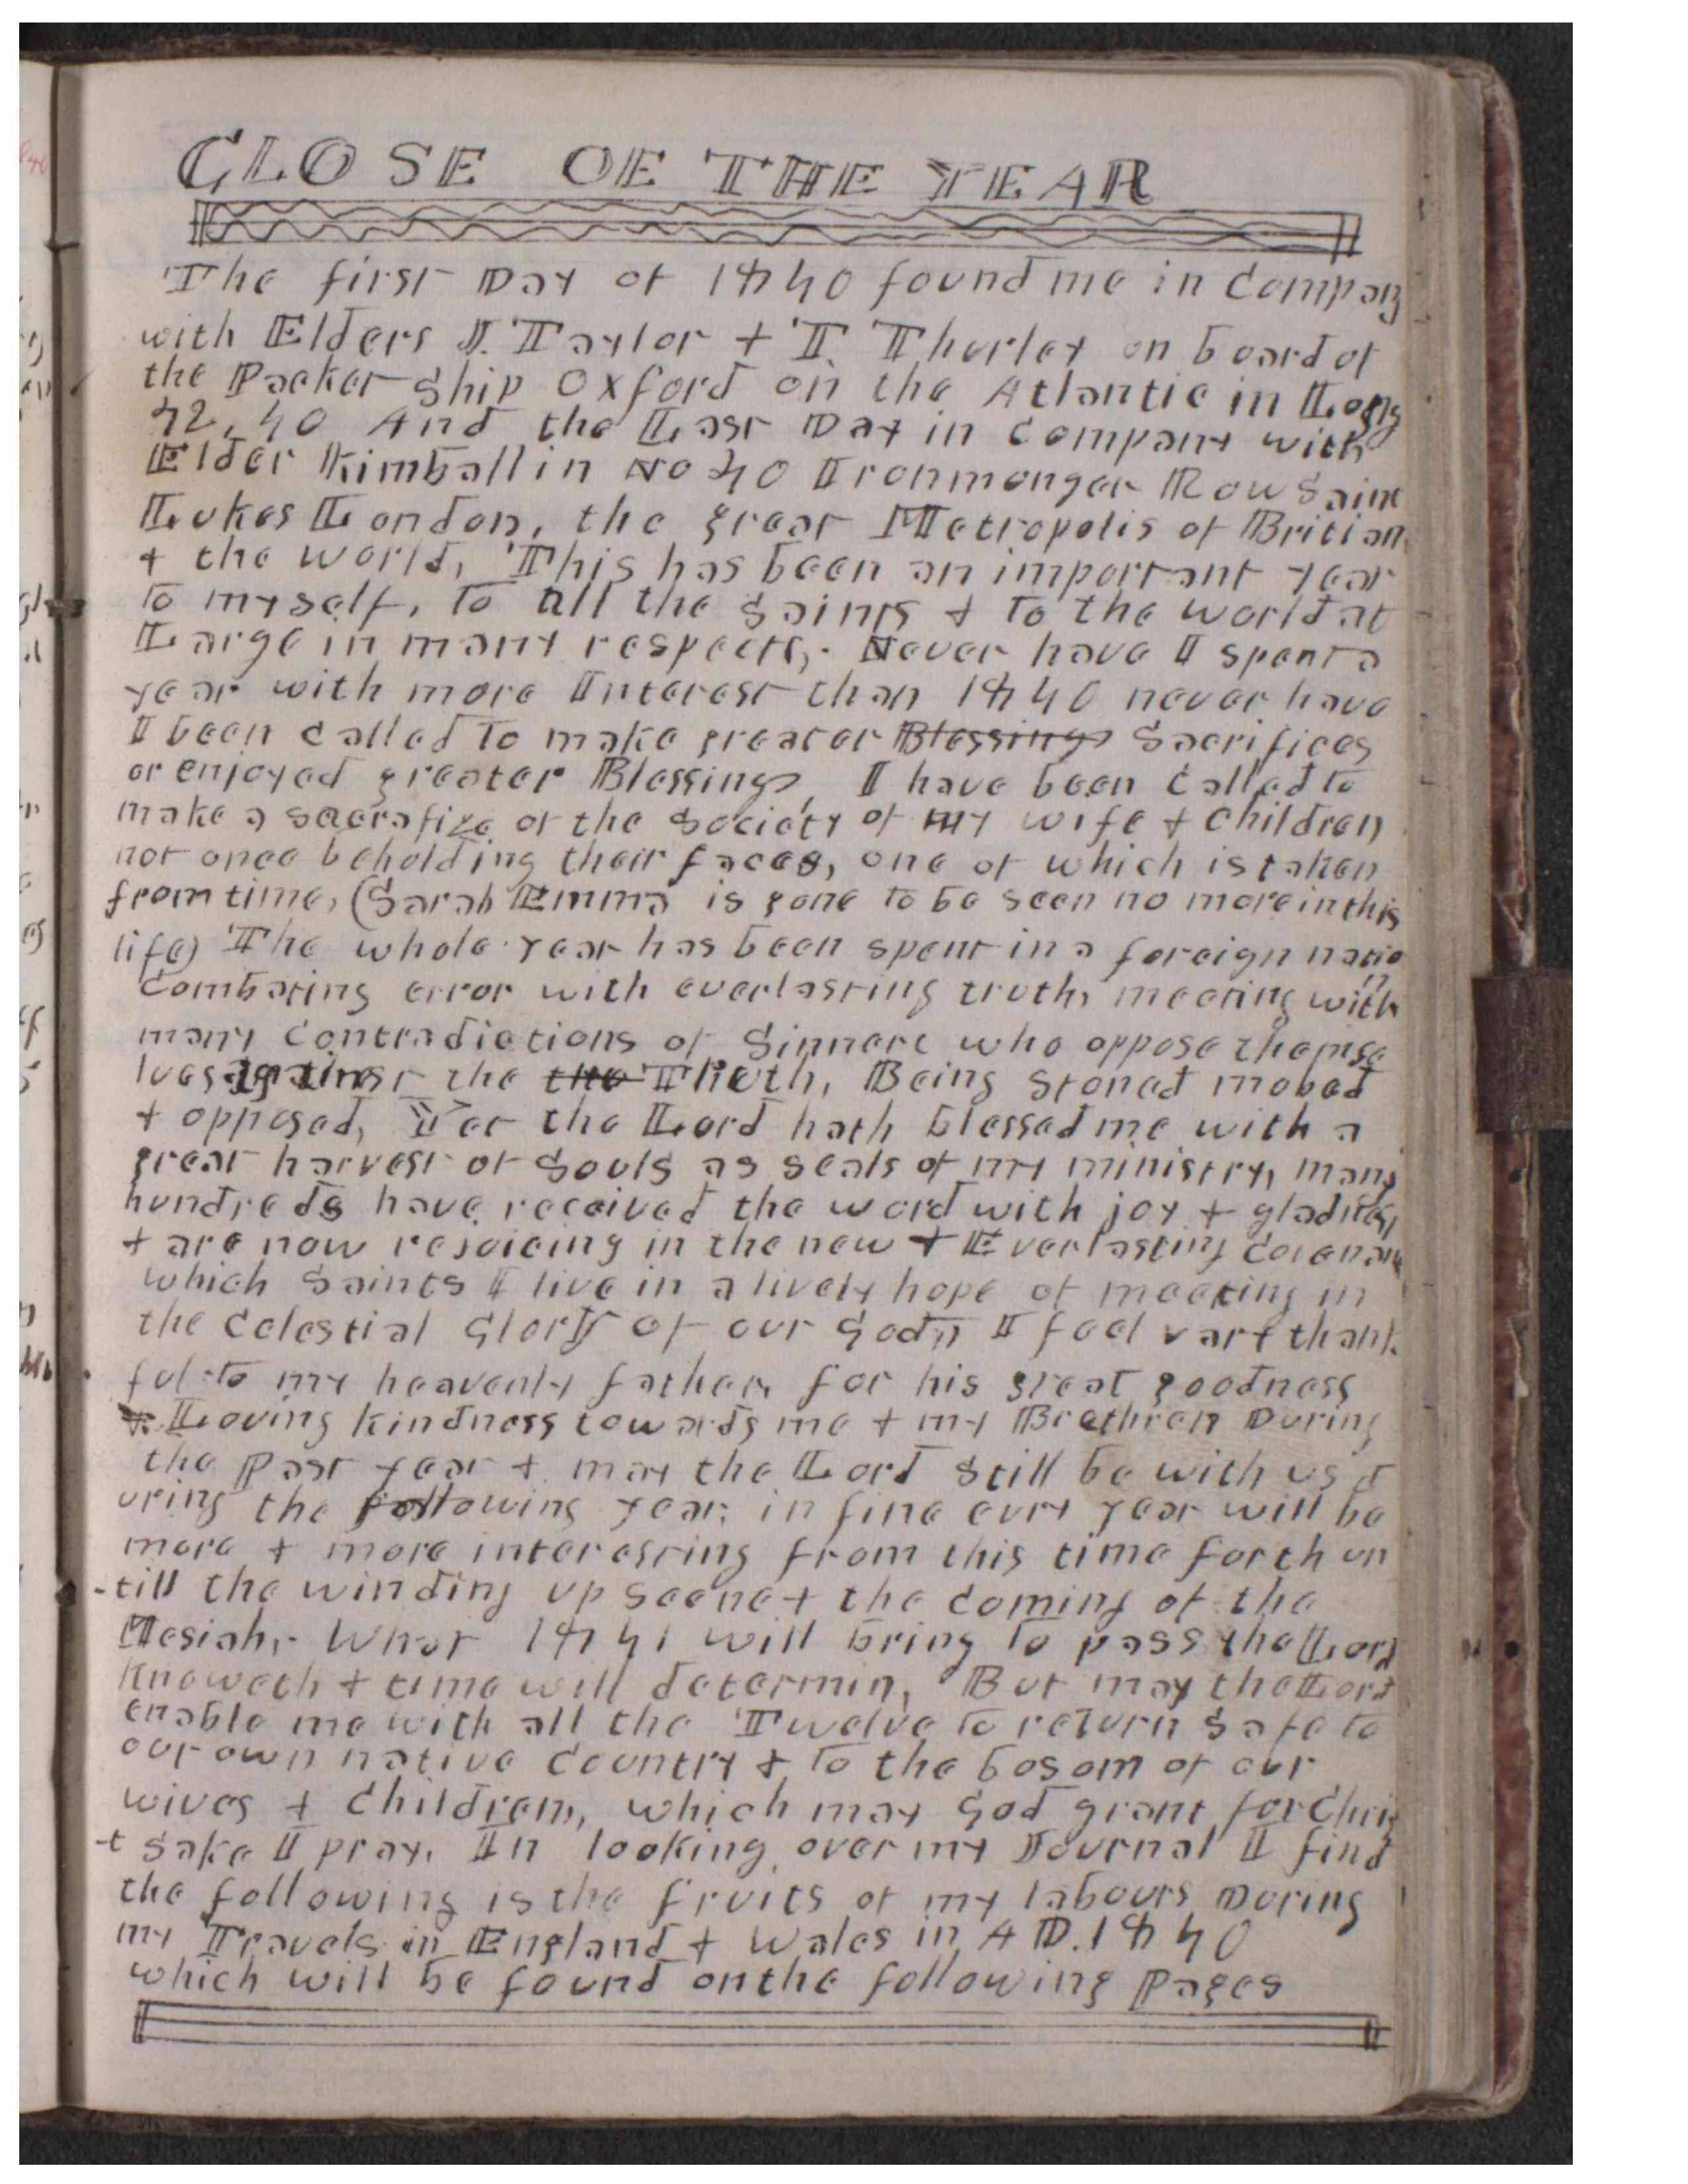 CLOSE OF THE YEAR
The first Day of 1840 found me in Company
with Elders J. Taylor & T. Thurley on board of
the Packet Ship Oxford on the Atlantic in Long
42, 40 And the Last Day in company with
Elder Kimball in No 40 Ironmonger Row Saint
Lukes London, the great Metropolis of Britian
& the world, This has been an important year
to myself, to all the Saints & to the world at
Large in many respects,. Never have I spent a
year with more Interest than 1840 never have
I been called to make greater Blessings Sacrifices
or enjoyed greater Blessings, I have been called to
make a sacrafize of the Society of my wife & children
not once beholding their faces, one of which is taken
from time, (Sarah Emma is gone to be seen no more in this
life) The whole year has been spent in a foreign natio
n
Combating error with everlasting truth, meeting with
many contradictions of Sinners who oppose themse
lves against the the Truth, Being stoned mobed
& opposed, Yet the Lord hath blessed me with a
great harvest of Souls as seals of my ministry, many
hundreds have received the word with joy & gladness
& are now rejoicing in the new & Everlasting Covenant
which Saints I live in a lively hope of meeting in
the Celestial Glory of our God,, I feel vary thank
ful to my heavenly father, for his great goodness
& Loving kindness towards me & my Brethren During
the Past year & may the Lord still be with us d
uring the following year; in fine evry year will be
more & more interesting from this time forth un
-till the winding up scene & the coming of the
Mesiah,. What 1841 will bring to pass the Lord
knoweth & time will determin, But may the Lord
enable me with all the Twelve to return safe to
our own native Country & to the bosom of our
wives & Children, which may God grant for Chris
-t sake I pray. In looking over my Journal I find
the following is the fruits of my labours During
my Travels in England & Wales in A D. 1840
which will be found on the following Pages